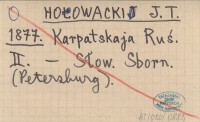 HOŁOWACKIJ J.T.
1877. Karpatskaja Ruś.
II. — Słow. Sborn.
(Petersburg).